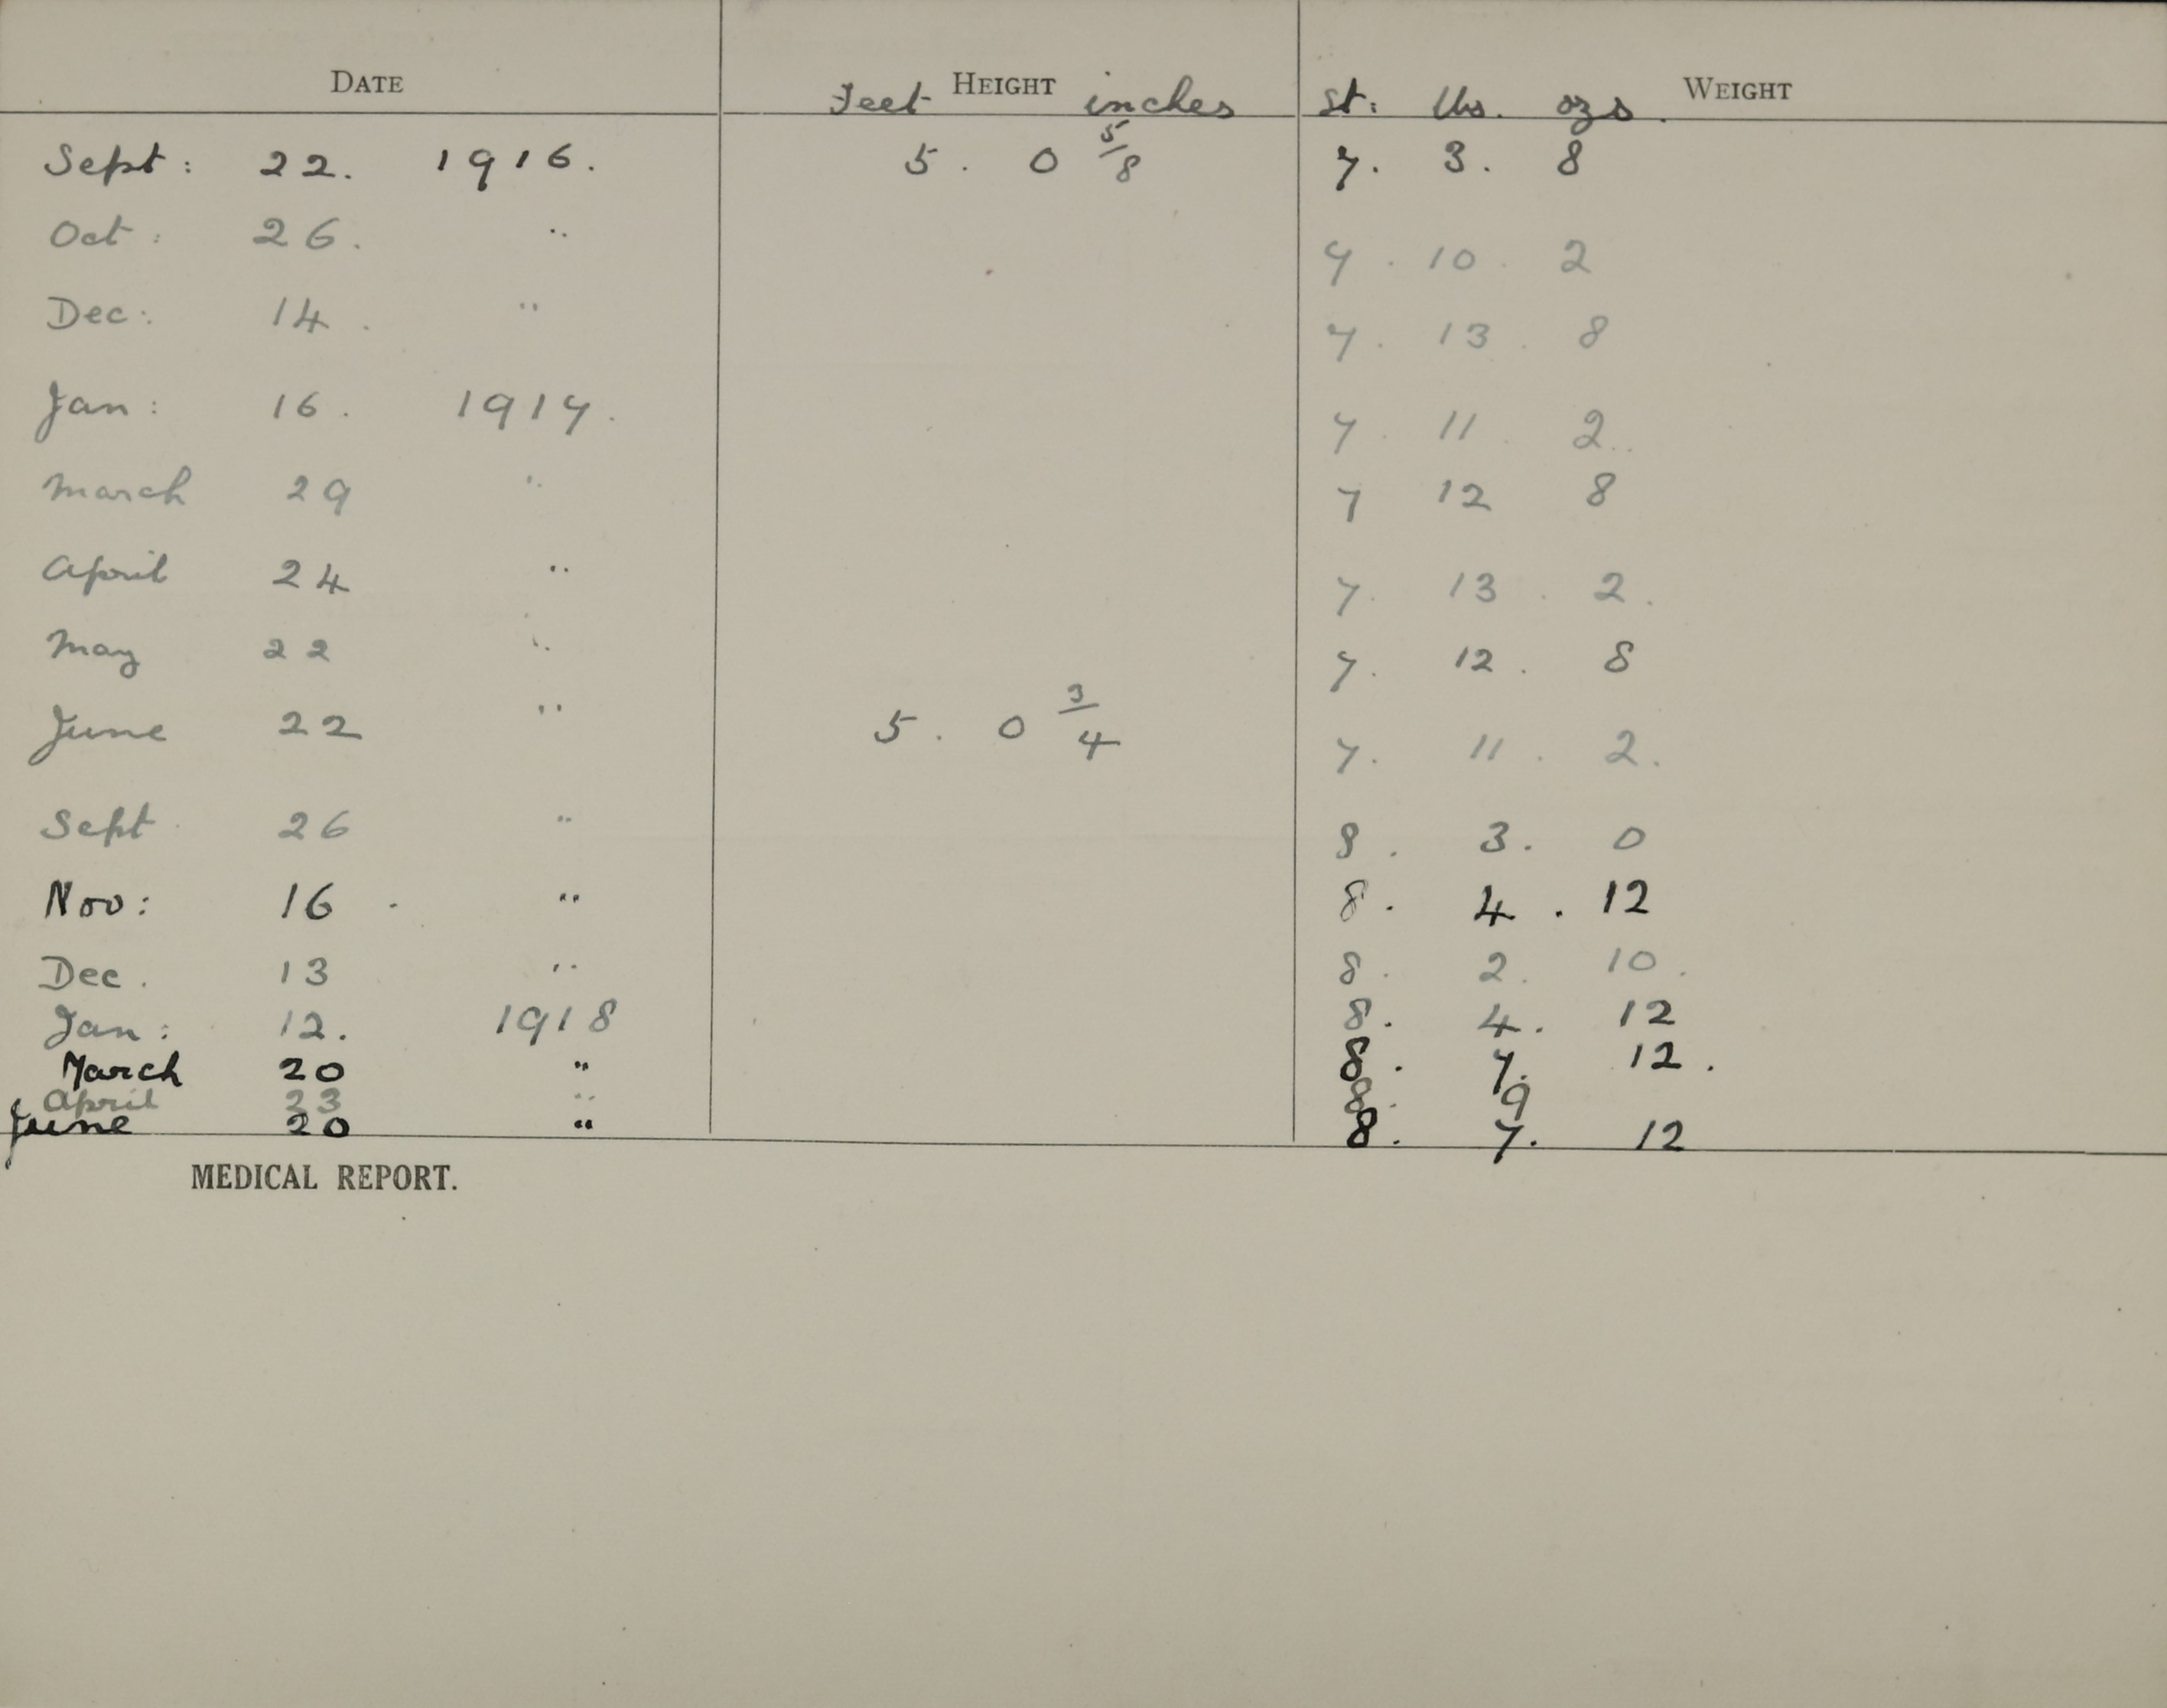 DATE HEIGHT WEIGHT
Feet inches st: lbs. ozs.
Sept: 22. 1916. 5. 0 5/8 7. 3. 8
Oct: 26. " 7. 10. 2
Dec: 14. " 7. 13. 8
Jan: 16. 1917. 7. 11. 2.
March 29 " 7 12 8
April 24 " 7. 13. 2.
May 22 " 7. 12. 8
June 22 " 5. 0 3/4 7. 11. 2.
Sept 26 " 8. 3. 0
Nov: 16. " 8. 4. 12
Dec. 13 " 8. 2. 10.
Jan: 12. 1918 8. 4. 12
March 20 " 8. 7. 12.
April 23 " 8. 9
June 20 " 8. 7. 12
MEDICAL REPORT.